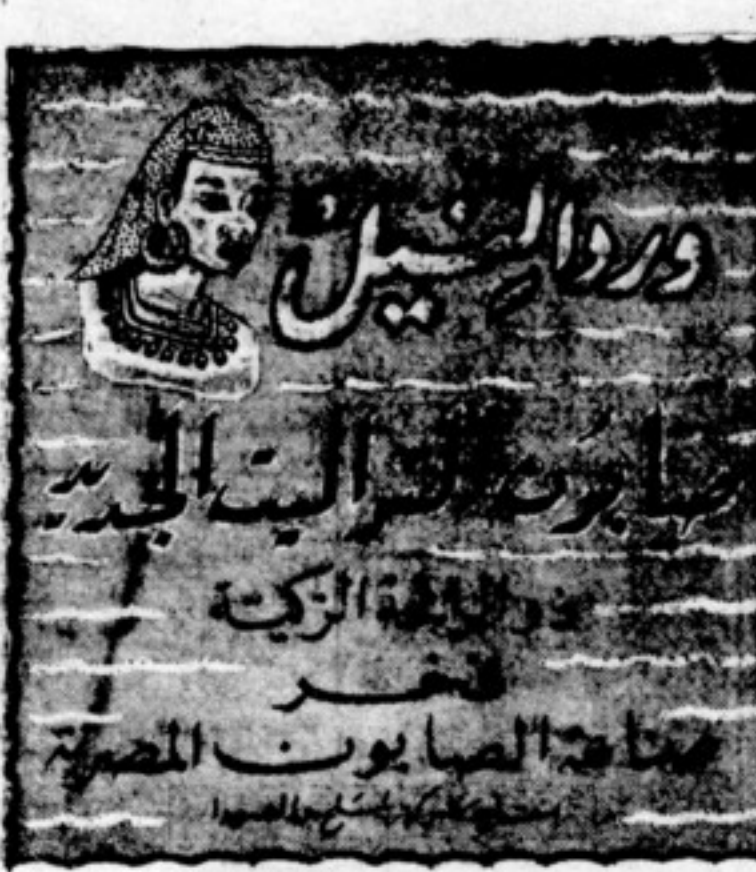 ورد النيل
صابون التواليت الجديد
ذو الرائحة الزكية
فخر
صناعة الصابون المصرية